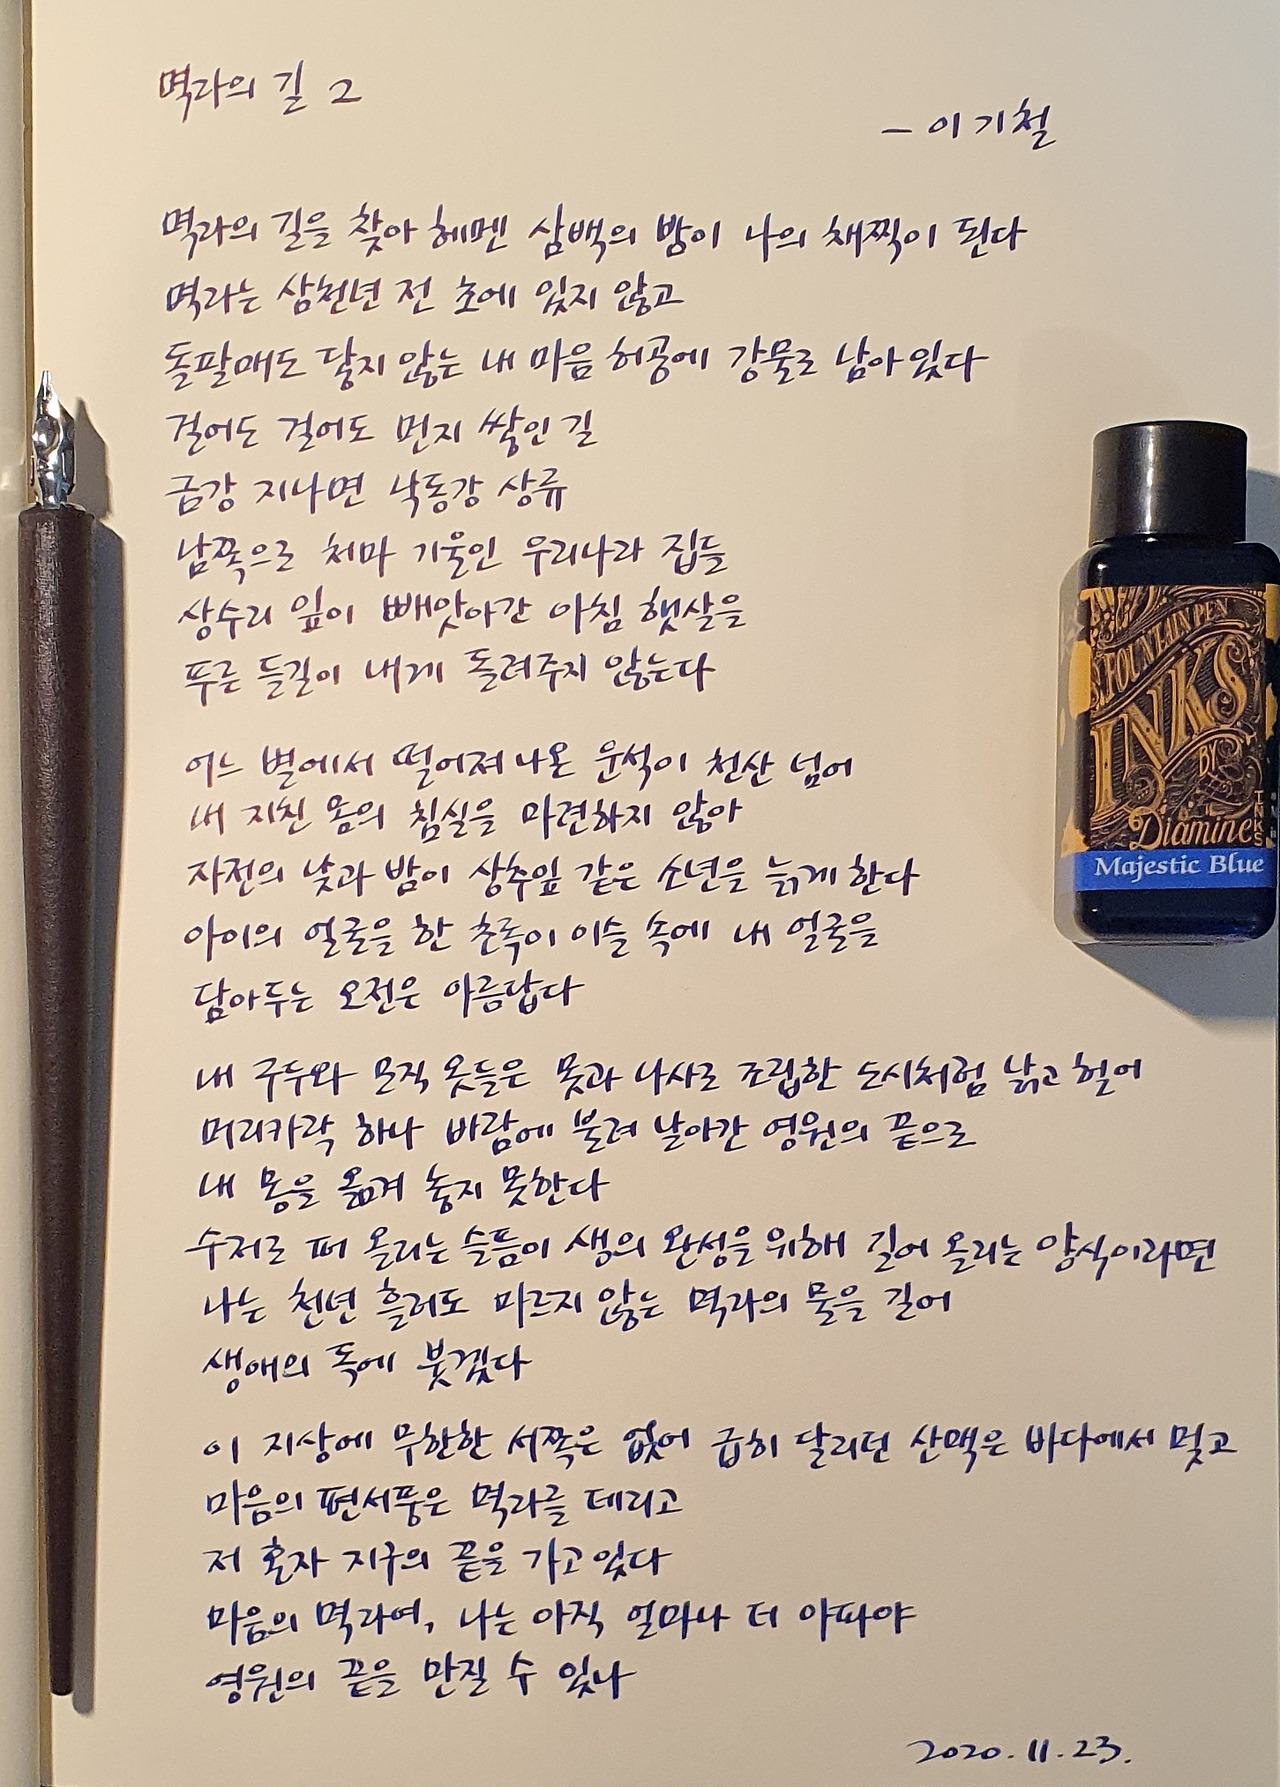 멱라의 길 2
- 이기철
멱라의 길을 찾아 헤멘 삼백의 밤이 나의 채찍이 된다
멱라는 삼천년 전 초에 있지 않고
돌팔매도 닿지 않는 내 마음 허공에 강물로 남아있다
걸어도 걸어도 먼지 쌓인 길
금강 지나면 낙동강 상류
남쪽으로 처마 기울인 우리나라 집들
상수리 잎이 빼앗아간 아침 햇살을
푸른 들길이 내게 돌려주지 않는다
어느 별에서 떨어져 나온 운석이 천산 넘어
내 지친 몸의 침실을 마련하지 않아
자전의 낮과 밤이 상추잎 같은 소년을 늙게 한다
아이의 얼굴을 한 초록이 이슬 속에 내 얼굴을
담아두는 오전은 아름답다
내 구두와 모직 옷들은 못과 나사로 조립한 도시처럼 낡고 헐어
머리카락 하나 바람에 불려 날아간 영원의 끝으로
내 몸을 옮겨 놓지 못한다
수저로 퍼 올리는 슬픔이 생의 완성을 위해 길어 올리는 양식이라면
나는 천년 흘러도 마르지 않는 멱라의 물을 길어
생애의 독에 붓겠다
이 지상에 무한한 서쪽은 없어 급히 달리던 산맥은 바다에서 멎고
마음의 편서풍은 멱라를 데리고
저 혼자 지구의 끝을 가고 있다
마음의 멱라여, 나는 아직 얼마나 더 아파야
영원의 끝을 만질 수 있나
2020. 11. 23.
FOUNTAIN PEN
INKS
BY
Diamine
INKS
Majestic Blue